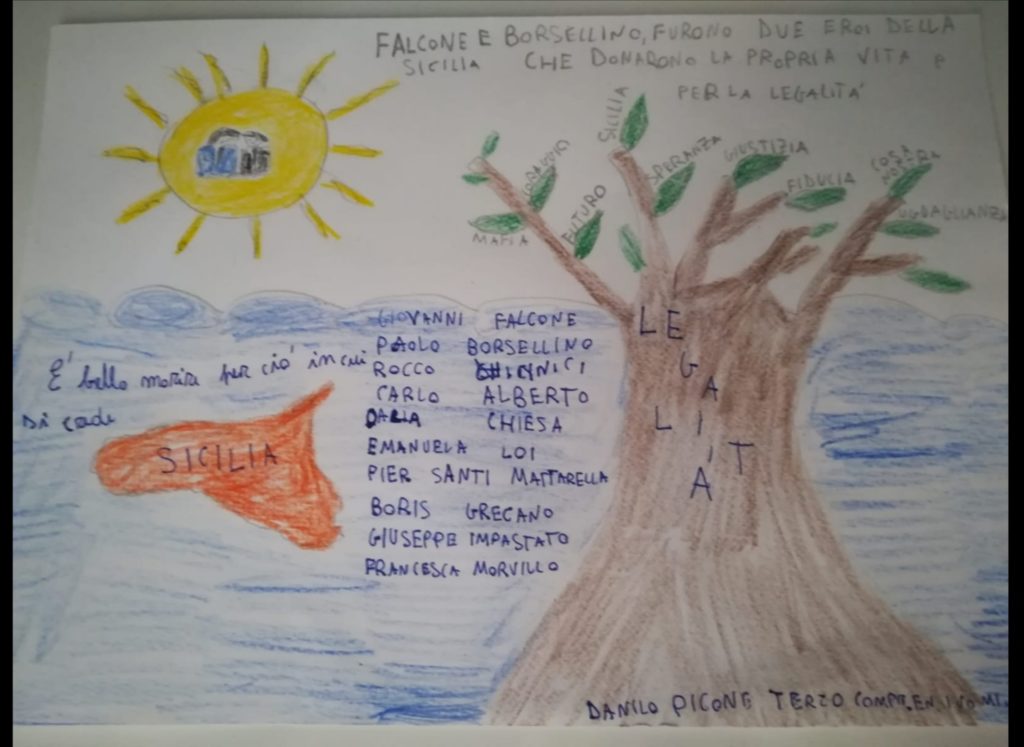 FALCONE E BORSELLINO, FURONO DUE EROI DELLA
SICILIA CHE DONARONO LA PROPRIA VITA
PER LA LEGALITA'
SICILIA
CORAGGIO
SPERANZA
GIUSTIZIA
COSA
NOSTRA
FIDUCIA
FUTURO
MAFIA
UGUAGLIANZA
LEGALITA
È bello morire per ciò in cui
si crede
SICILIA
GIOVANNI FALCONE
PAOLO BORSELLINO
ROCCO CHINNICI
CARLO ALBERTO
DALLA CHIESA
EMANUELA LOI
PIER SANTI MATTARELLA
BORIS GRECANO
GIUSEPPE IMPASTATO
FRANCESCA MORVILLO
DANILO PICONE TERZO